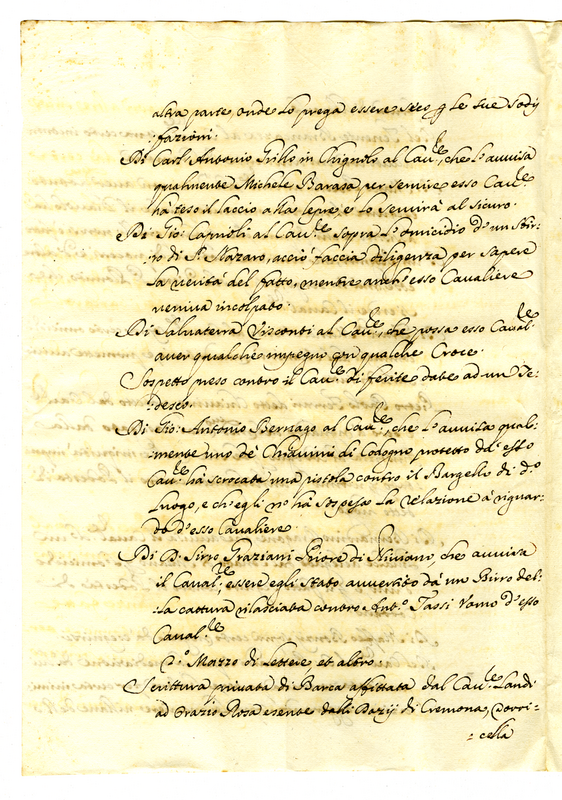 altra parte, onde lo prega essere seco p le sue sodis
fazioni.
Di Carl'Antonio Grillo in Chignolo al Cau.re, che l'auuisa
qualmente Michele Barasa, per seruire esso Cau.re
hà teso il laccio alla lepre, e lo seruirà al sicuro.
Di Gio: Capnoli al Cau.re sopra l'omicidio d'un Sbir-
ro di S. Nazaro, acciò faccia diligenza per sapere
la verità del fatto, mentre anch'esso Caualiere
veniua incolpato.
Di Saluaterra Visconti al Cau.re, che possa esso Caual.re
auer qualche impegno con qualche Croce.
Sospetto preso contro il Cau.re di ferite date ad un Te-
desco.
Di Gio: Antonio Bernago al Cau.re, che l'auuisa qual-
mente uno de' Chiauini di Codogno protetto da esso
Cau.re hà scrocata una pistola contro il Bargello di d.o
Luogo, e ch'egli nō hà sospesa la relazione à riguar-
do d'esso Caualiere.
Di D. Siro Graziani Priore di Niuiano, che auuisa
il Caual.re essere egli stato auuertito da un Birro del-
la cattura rilasciata contro Ant.o Tassi Uomo d'esso
Caual.re
2.o Mazzo di Lettere et altro.
Scrittura priuata di Barca affittata dal Cau.re Landi
ad Orazio Rosa esente dalli Dazij di Cremona, e Torri-
cella